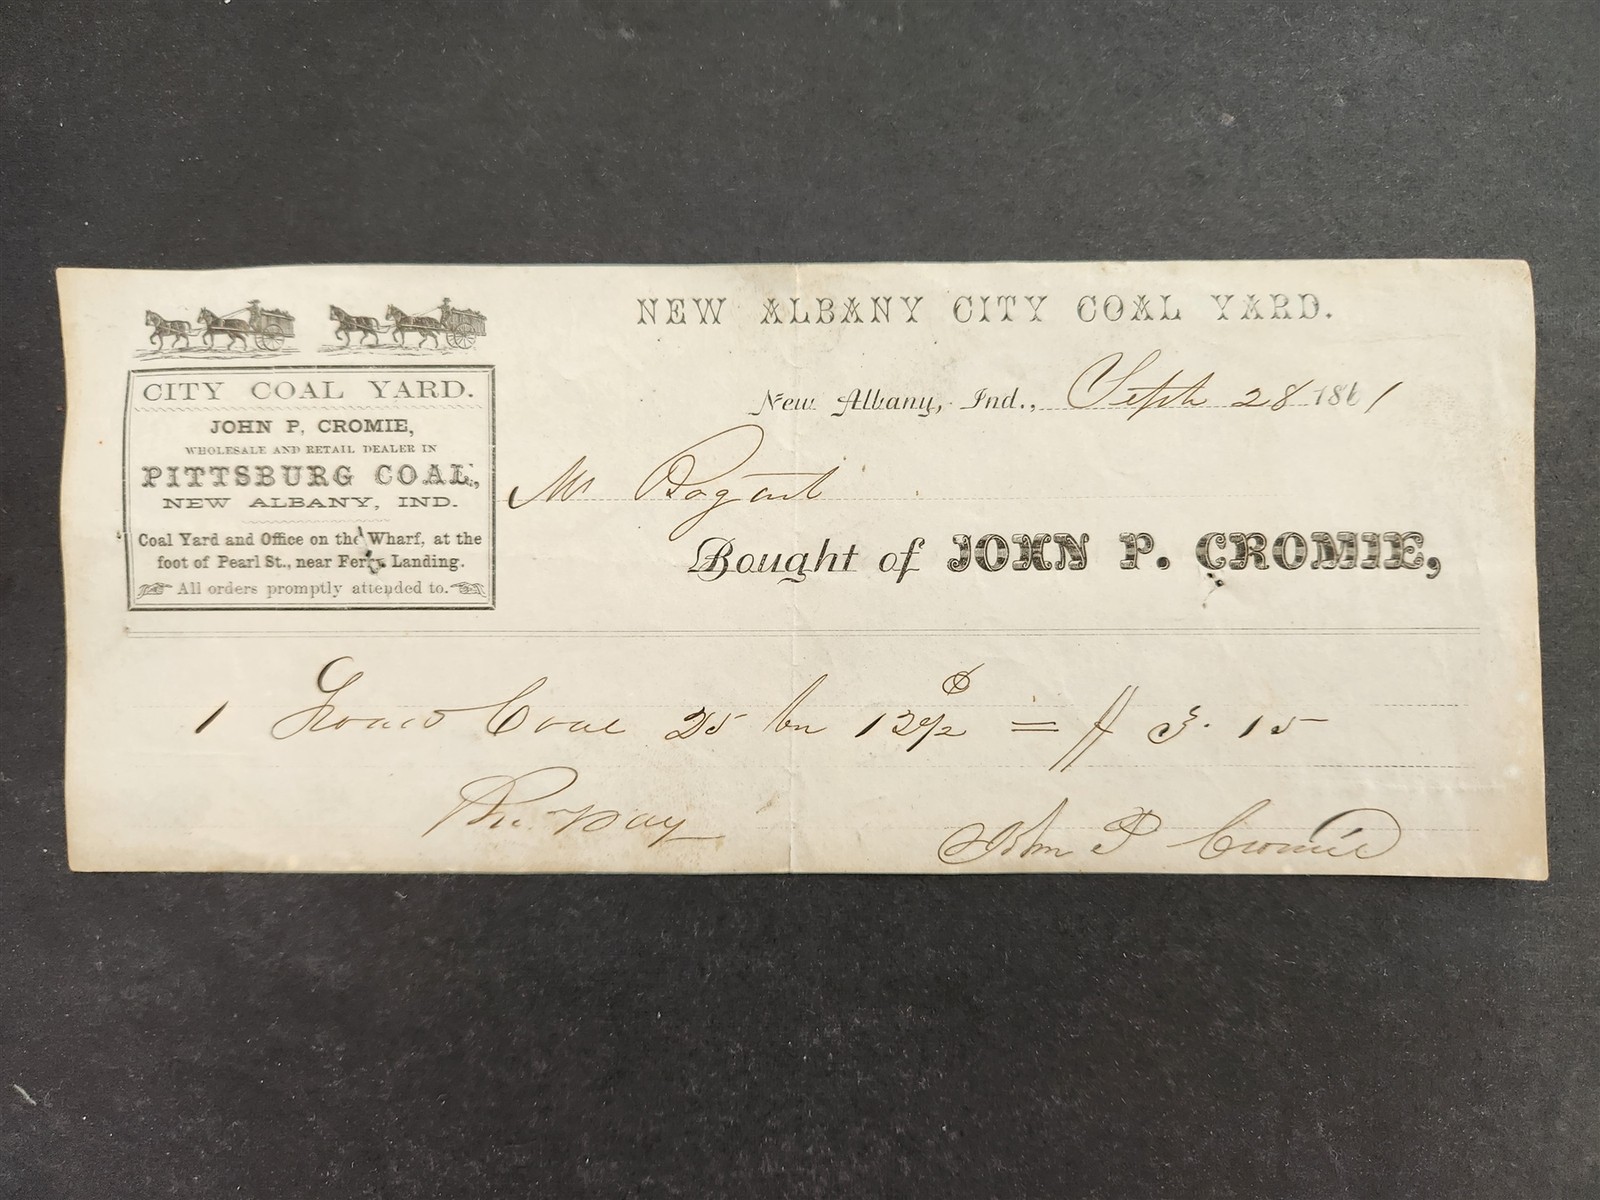 NEW ALBANY CITY COAL YARD.
New Albany, Ind., Sept 28 1861
CITY COAL YARD.
JOHN P. CROMIE,
WHOLESALE AND RETAIL DEALER IN
PITTSBURG COAL,
NEW ALBANY, IND.
Coal Yard and Office on the Wharf, at the
foot of Pearl St., near Ferry Landing.
All orders promptly attended to.
Mr Bogart
Bought of JOHN P. CROMIE,
1 Load Coal 25 bu 12½ = $ 3.15
pay
John P Cromie